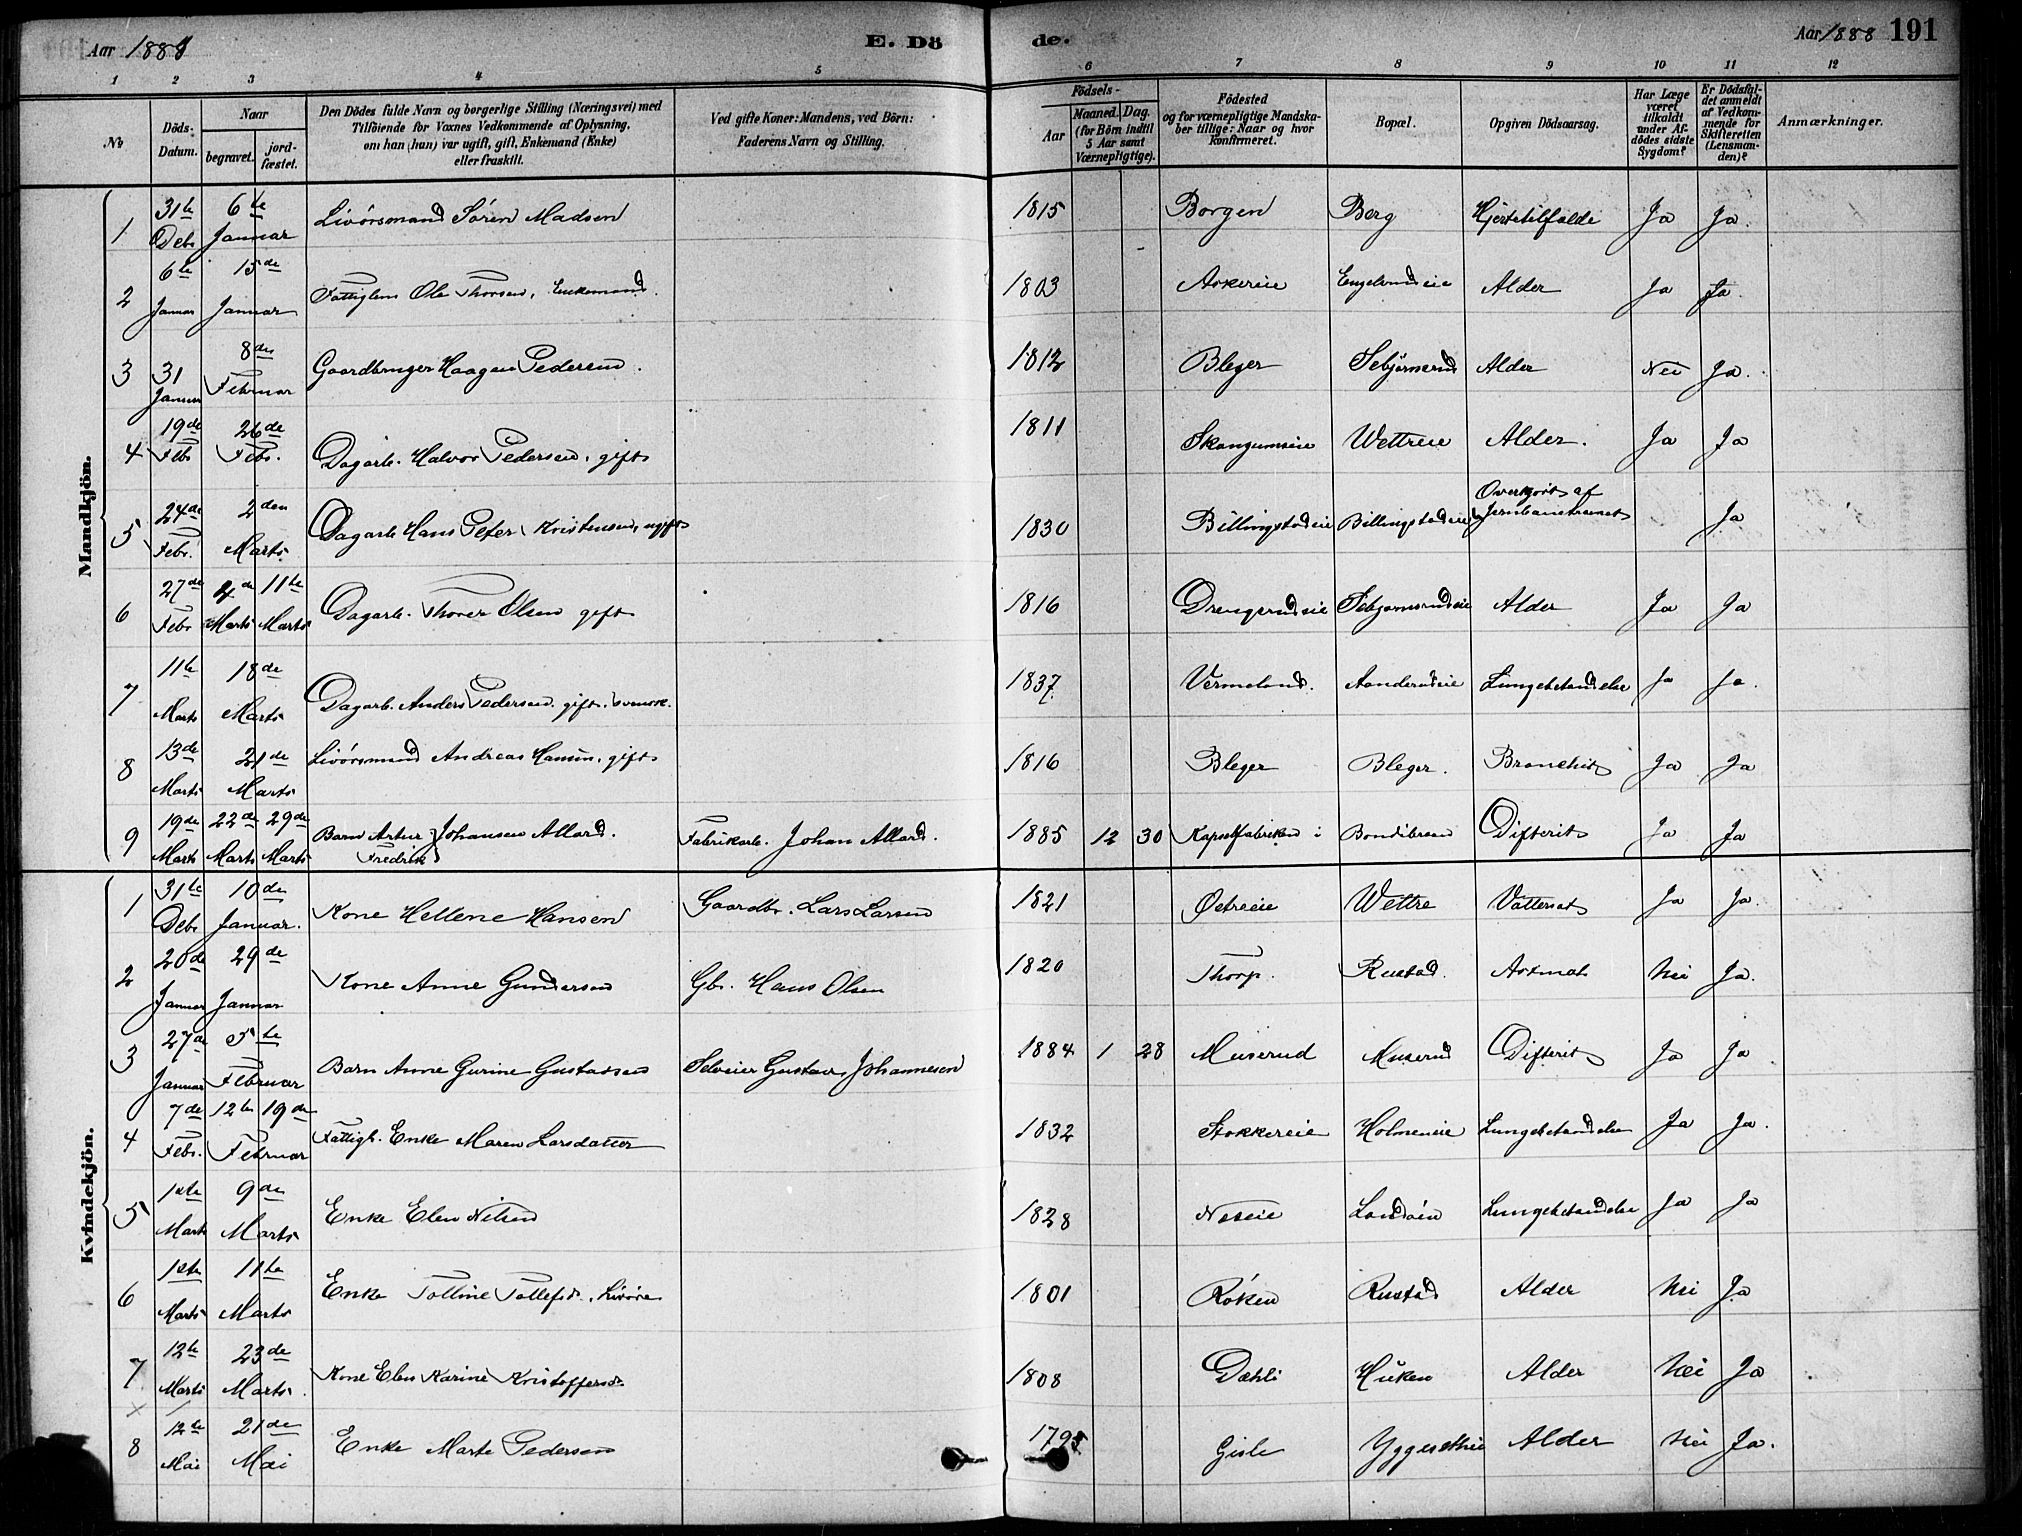 Aar 1888 E. Dö de. Aar 1888 191
1 2 3 4 5 6 7 8 9 10 11 12
No Döds-Datum. Naar begravet. jordfæstet. Den Dödes fulde Navn og borgerlige Stilling (Næringsvei) med Tilföiende for Voxnes Vedkommende af Oplysning. om han (hun) var ugift, gift, Enkemand (Enke) eller fraskilt. Ved gifte Koner: Mandens, ved Börn: Faderens Navn og Stilling. Födsels- Aar Maaned. Dag. (for Börn indtil 5 Aar samt Værnepligtige). Födested og for værnepligtige Mandskaber tillige: Naar og hvor konfirmeret. Bopæl. Opgiven Dödsaarsag. Har Læge været tilkaldt under Afdödes sidste Sygdom? Er Dödsfaldet anmeldt af Vedkommende for Skifteretten (Lensmanden)? Anmærkninger.
Mandkjön.
1 31te Debr 6te Januar Livörsmand Sören Madsen 1815 Borgen Berg Hjertetilfælde Ja Ja.
2 6te Januar 15de Januar Fattiglem Ole Thorsen, Enkemand. 1803 Askereie Engelsrudeie Alder Ja Ja.
3 31 Januar 8de Februar Gaardbruger Haagen Pedersen. 1812 Bleger Sebjörnsrud Alder Nei Ja.
4 19de Febr 26de Febr. Dagarb. Halvor Pedersen, gift 1811 Skaugumseie Wettreie Alder. Ja Ja
5 24de Febr. 2den Marts Dagarb Hans Peter Kristensen, ugift 1830 Billingstadeie Billingstadeie Overkjört af Jernbanetrainet Ja
6 27de Febr 4de Marts 11te Marts Dagarb. Thorer Olsen gift 1816 Drengsrudeie Sebjörnsrudeie Alder Ja Ja
7 11te Marts 18de Marts Dagarb. Anders Pedersen gift. svensk. 1837 Vermeland. Aanderudeie Lungebetændelse Ja Ja.
8 13de Marts 21de Marts Livörsmand Andreas Hansen, gift 1816 Bleger Bleger. Bronchit Ja Ja
9 19de Marts 22de Marts 29de Marts Barn Artur Fredrik Johansen Allard. Fabrikarb. Johan Allard. 1885 12 30 Kapselfabriken i Bondibraaten Difterit Ja Ja
Kvindekjön.
1 31te Debr 10de Januar. Kone Hellene Hansen Gaardbr. Lars Larsen 1821 Östreeie Wettre Vattersot Ja Ja.
2 20de Januar 29de Januar Kone Anne Gundersen Gbr. Hans Olsen 1820 Thorp. Rustad. Astma Nei Ja.
3 27de Januar 5te Februar Barn Anne Gurine Gustavsen Selveier Gustav Johannesen 1884 1 28 Muserud Muserud Difterit Ja Ja
4 7de Febr. 12te 19de Februar Fattigl. Enke Maren Larsdatter 1832 Stokkereie Holmeneie Lungebetændelse Ja Ja.
5 1ste Marts 9de Marts Enke Elen Nilsen 1828 Neseie Landöen Lungebetændelse Ja Ja
6 1ste Marts 11te Marts Enke Tolline Tollefsd. Livöre 1801 Röken Rustad Alder Nei Ja
7 12te Marts 23de Marts. Kone Elen Karine Kristoffersd. 1808 Dæhli Huken Alder Nei Ja
8 12te Mai 21de Mai Enke Marte Pedersen 1795 Gisle Yggesetheie Alder Nei Ja.